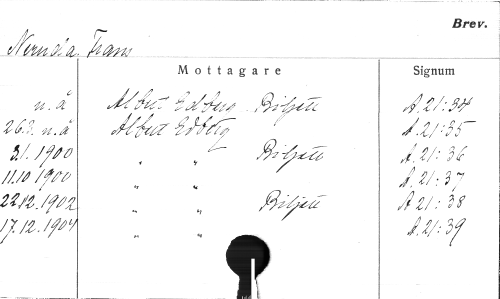 Brev.
Neruda. Franz
Mottagare Signum
n.å Albert Edberg. Biljett A. 21:34
26.3. n.å Albert Edberg A. 21:35
3.1. 1900 " " Biljett A. 21:36
11.10 1900 " " A. 21:37
22.12.1902 " " Biljett A. 21:38
17.12.1904 " " A. 21:39